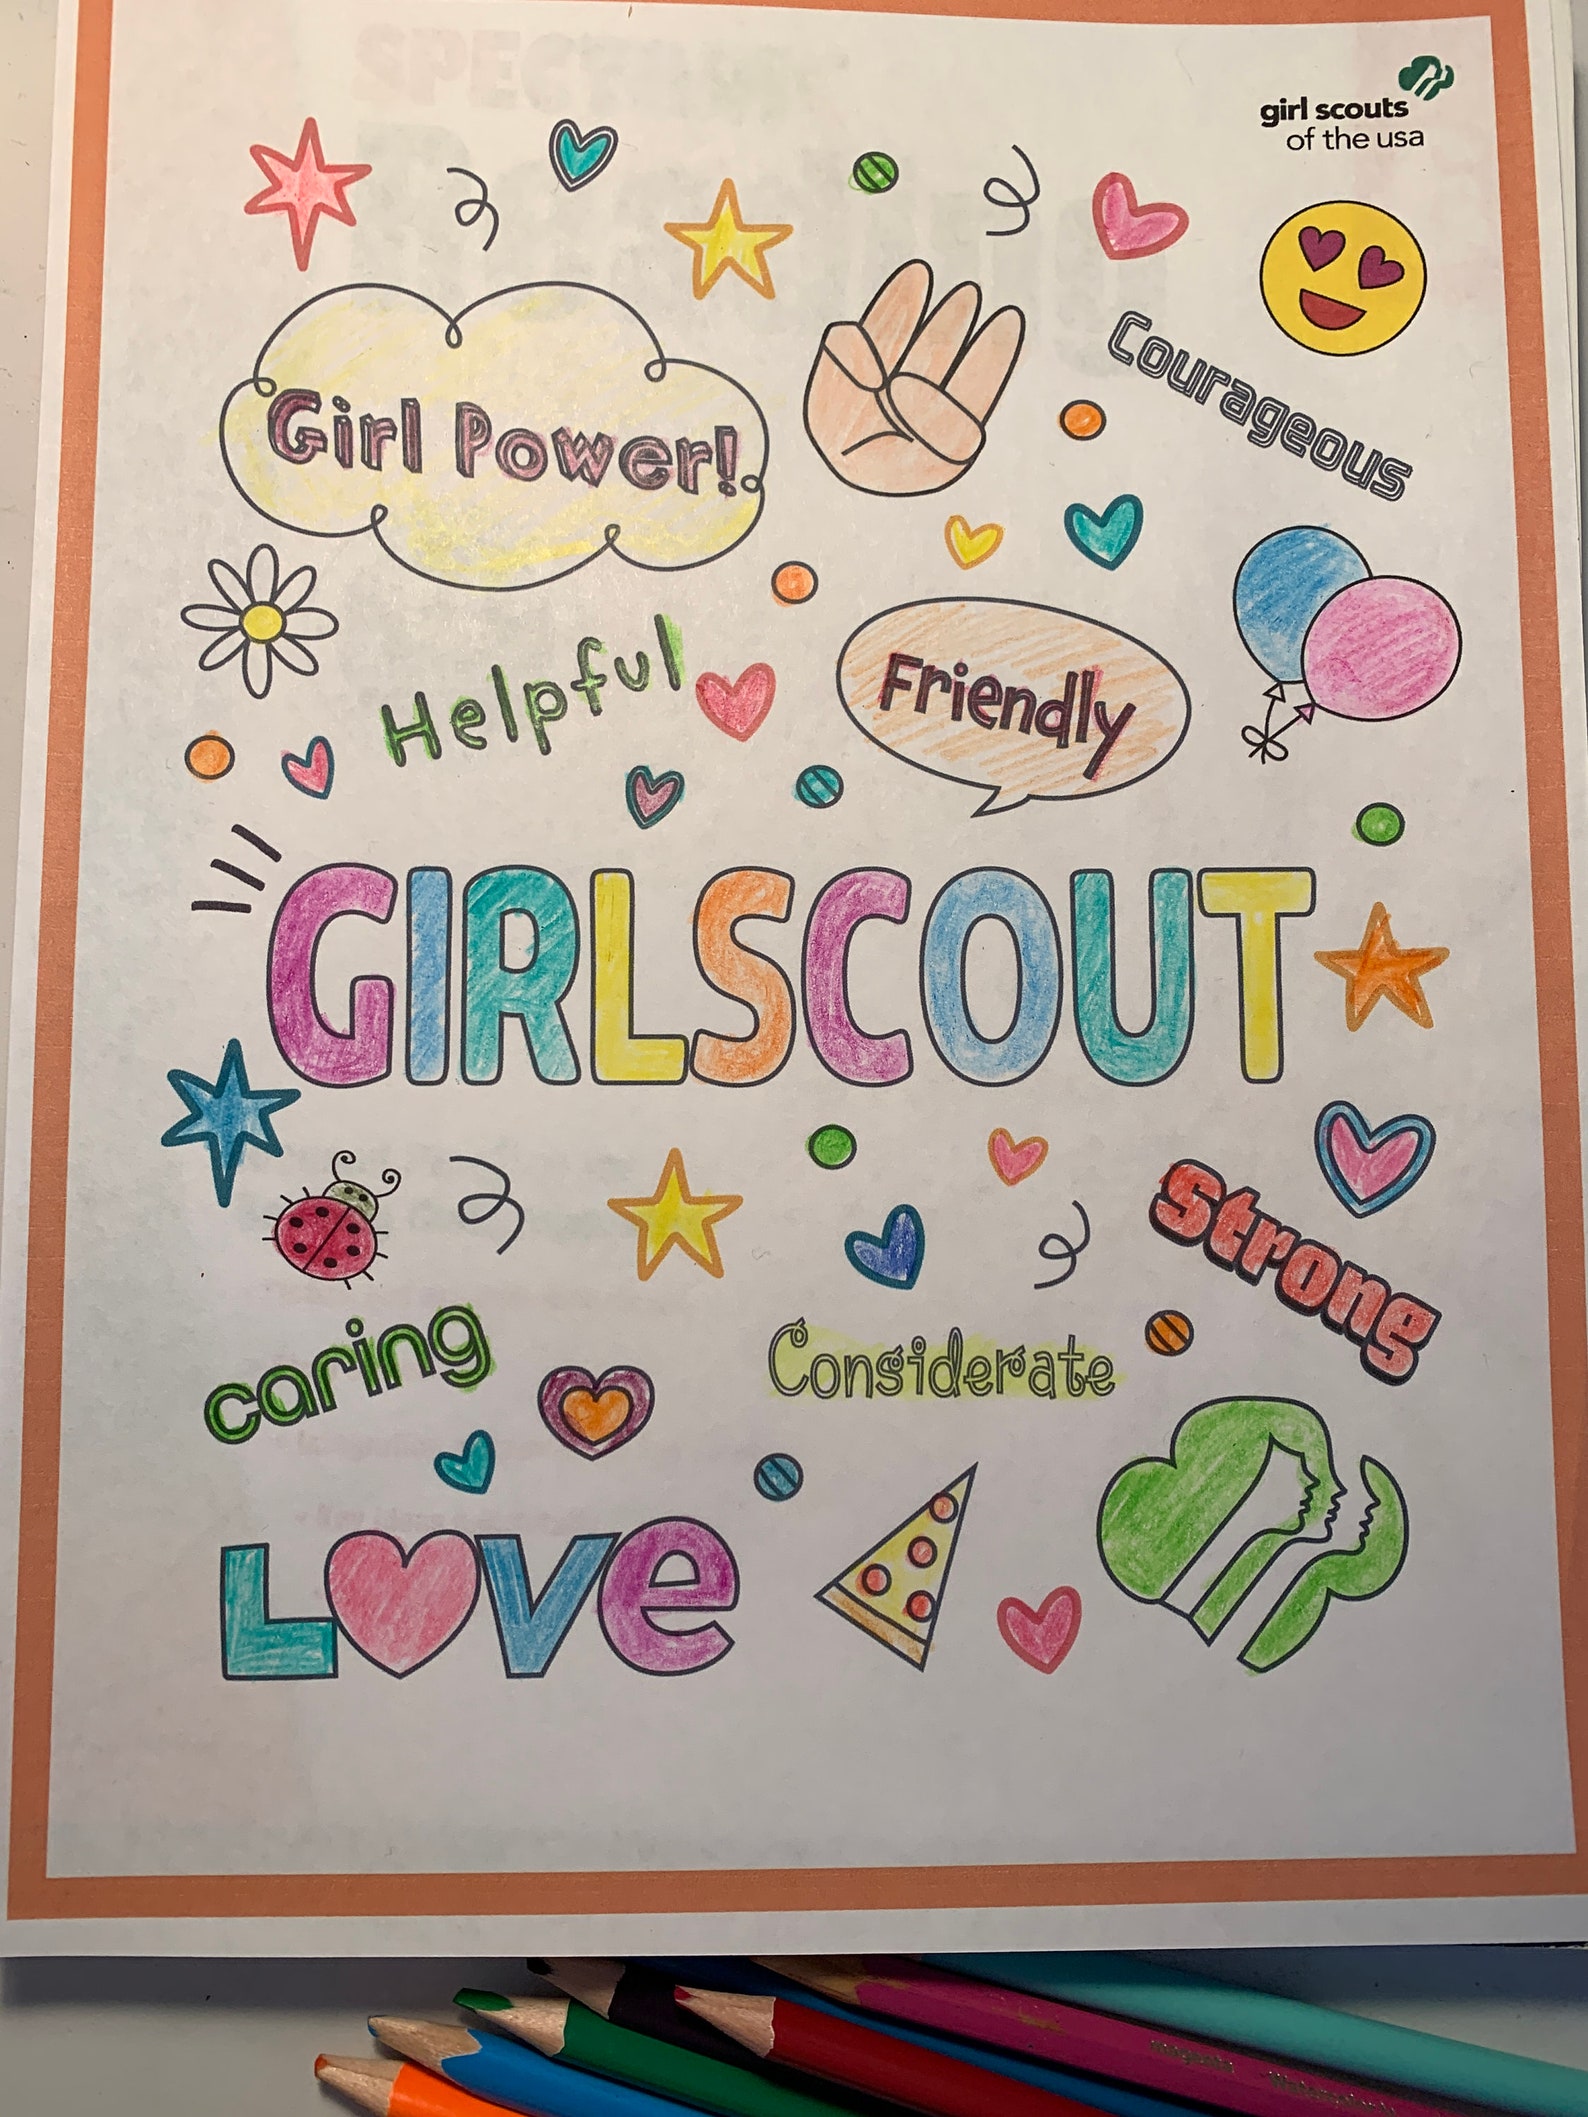 girl scouts
of the usa
Courageous
Girl Power!
Helpful
Friendly
GIRLSCOUT
Strong
caring
Considerate
LOVE
magenta